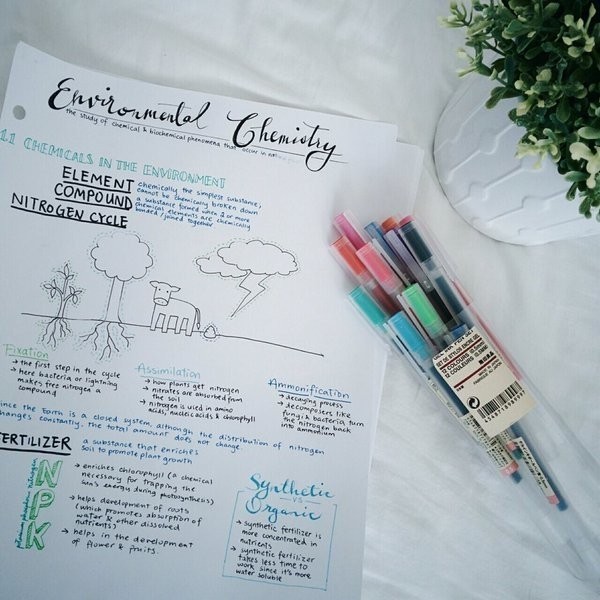 Environmental Chemistry
the study of chemical & biochemical phenomena that occur in
1.1 CHEMICALS IN THE ENVIRONMENT
ELEMENT chemically the simplest substance,
cannot be chemically broken down
COMPOUND a substance formed when 2 or more
chemical elements are chemically
bonded/joined together
NITROGEN CYCLE
Fixation
→ the first step in the cycle
→ here bacteria or lightning
makes free nitrogen a
compound
Assimilation
→ how plants get nitrogen
→ nitrates are absorbed from
the soil
→ nitrogen is used in amino
acids, nucleic acids & chlorophyll
Ammonification
→ decaying process
→ decomposers like
fungi & bacteria turn
the nitrogen back
into ammonium
since the Earth is a closed system, although the distribution of nitrogen
changes constantly, the total amount does not change.
FERTILIZER a substance that enriches
soil to promote plant growth
nitrogen N
→ enriches chlorophyll (a chemical
necessary for trapping the
sun's energy during photosynthesis)
P
→ helps development of roots
(which promotes absorption of
water & other dissolved
nutrients)
potassium K
→ helps in the development
of flower & fruits.
Synthetic
vs
Organic
→ synthetic fertilizer
is more concentrated in
nutrients
→ synthetic fertilizer
takes less time to
work since it's more
water soluble